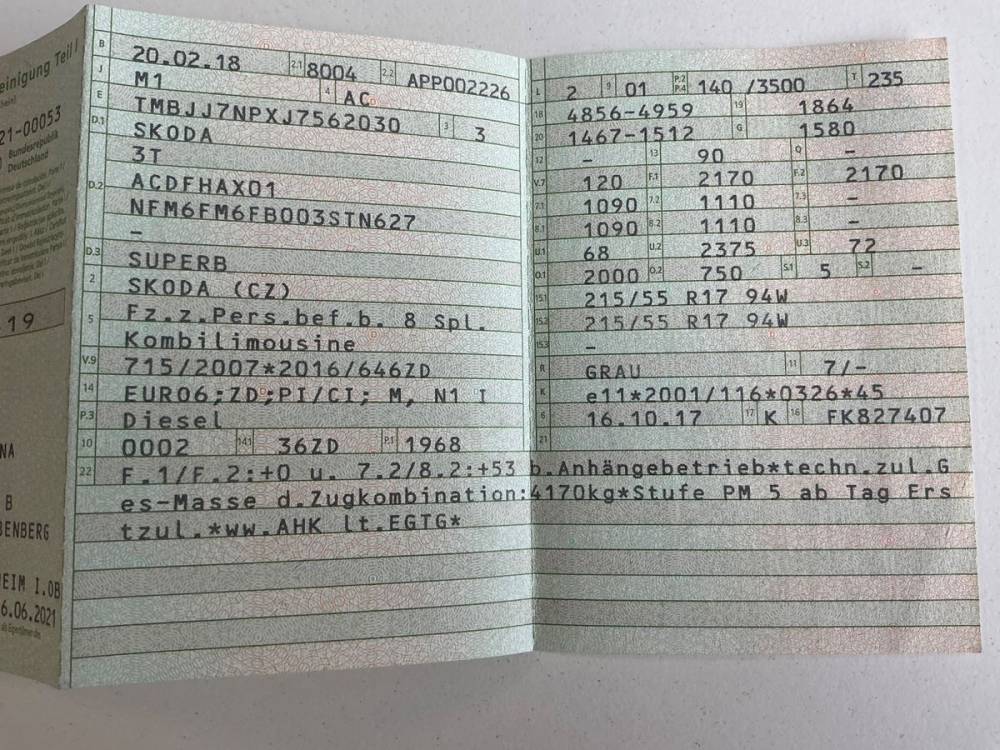 einigung Teil I
21-00053
Bundesrepublik
Deutschland
19
NA
B
BENBERG
EIM I.OB
6.06.2021
B 20.02.18 2.1 8004 2.2 APP002226
J M1 4 AC
E TMBJJ7NPXJ7562030 3 3
D.1 SKODA
3T
D.2 ACDFHAX01
NFM6FM6FB003STN627
–
D.3 SUPERB
2 SKODA (CZ)
5 Fz.z.Pers.bef.b. 8 Spl.
Kombilimousine
V.9 715/2007*2016/646ZD
14 EURO6;ZD;PI/CI; M, N1 I
P.3 Diesel
10 0002 14.1 36ZD P.1 1968
L 2 9 01 P.2 P.4 140 /3500 T 235
18 4856-4959 19 1864
20 1467-1512 G 1580
12 – 13 90 Q –
V.7 120 F.1 2170 F.2 2170
7.1 1090 7.2 1110 7.3 –
8.1 1090 8.2 1110 8.3 –
U.1 68 U.2 2375 U.3 72
O.1 2000 O.2 750 S.1 5 S.2 –
15.1 215/55 R17 94W
15.2 215/55 R17 94W
15.3 –
R GRAU 11 7/-
K e11*2001/116*0326*45
6 16.10.17 17 K 16 FK827407
21
22 F.1/F.2:+0 u. 7.2/8.2:+53 b.Anhängebetrieb*techn.zul.G
es-Masse d.Zugkombination:4170kg*Stufe PM 5 ab Tag Ers
tzul.*ww.AHK lt.EGTG*